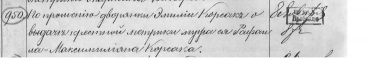 950) По прошенію дворянки Эмиліи Корсакъ о
выдачѣ крестной метрики мужа ея Рафаи-
ла-Максимиліана Корсака.